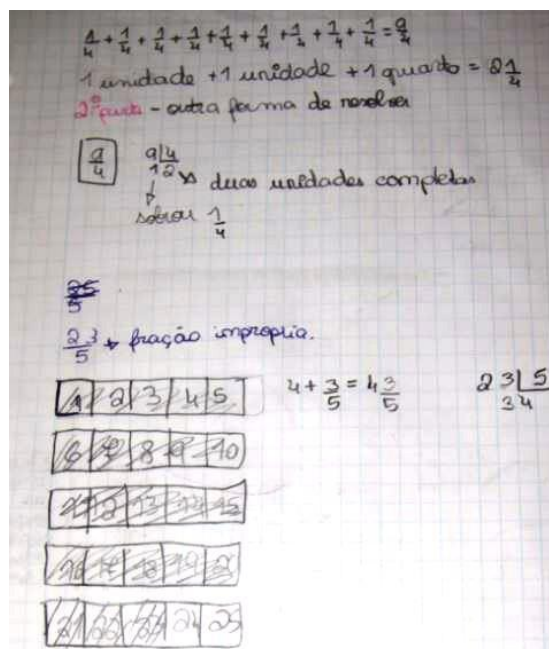 1/4 + 1/4 + 1/4 + 1/4 + 1/4 + 1/4 + 1/4 + 1/4 + 1/4 = 9/4
1 unidade + 1 unidade + 1 quarto = 2 1/4
2ª parte - outra forma de resolver
9/4
9 | 4
1 2 → duas unidades completas
sobrou 1/4
23/5 → fração impropria.
1 2 3 4 5
4 + 3/5 = 4 3/5
23 | 5
3 4
6 7 8 9 10
11 12 13 14 15
16 17 18 19 20
21 22 23 24 25